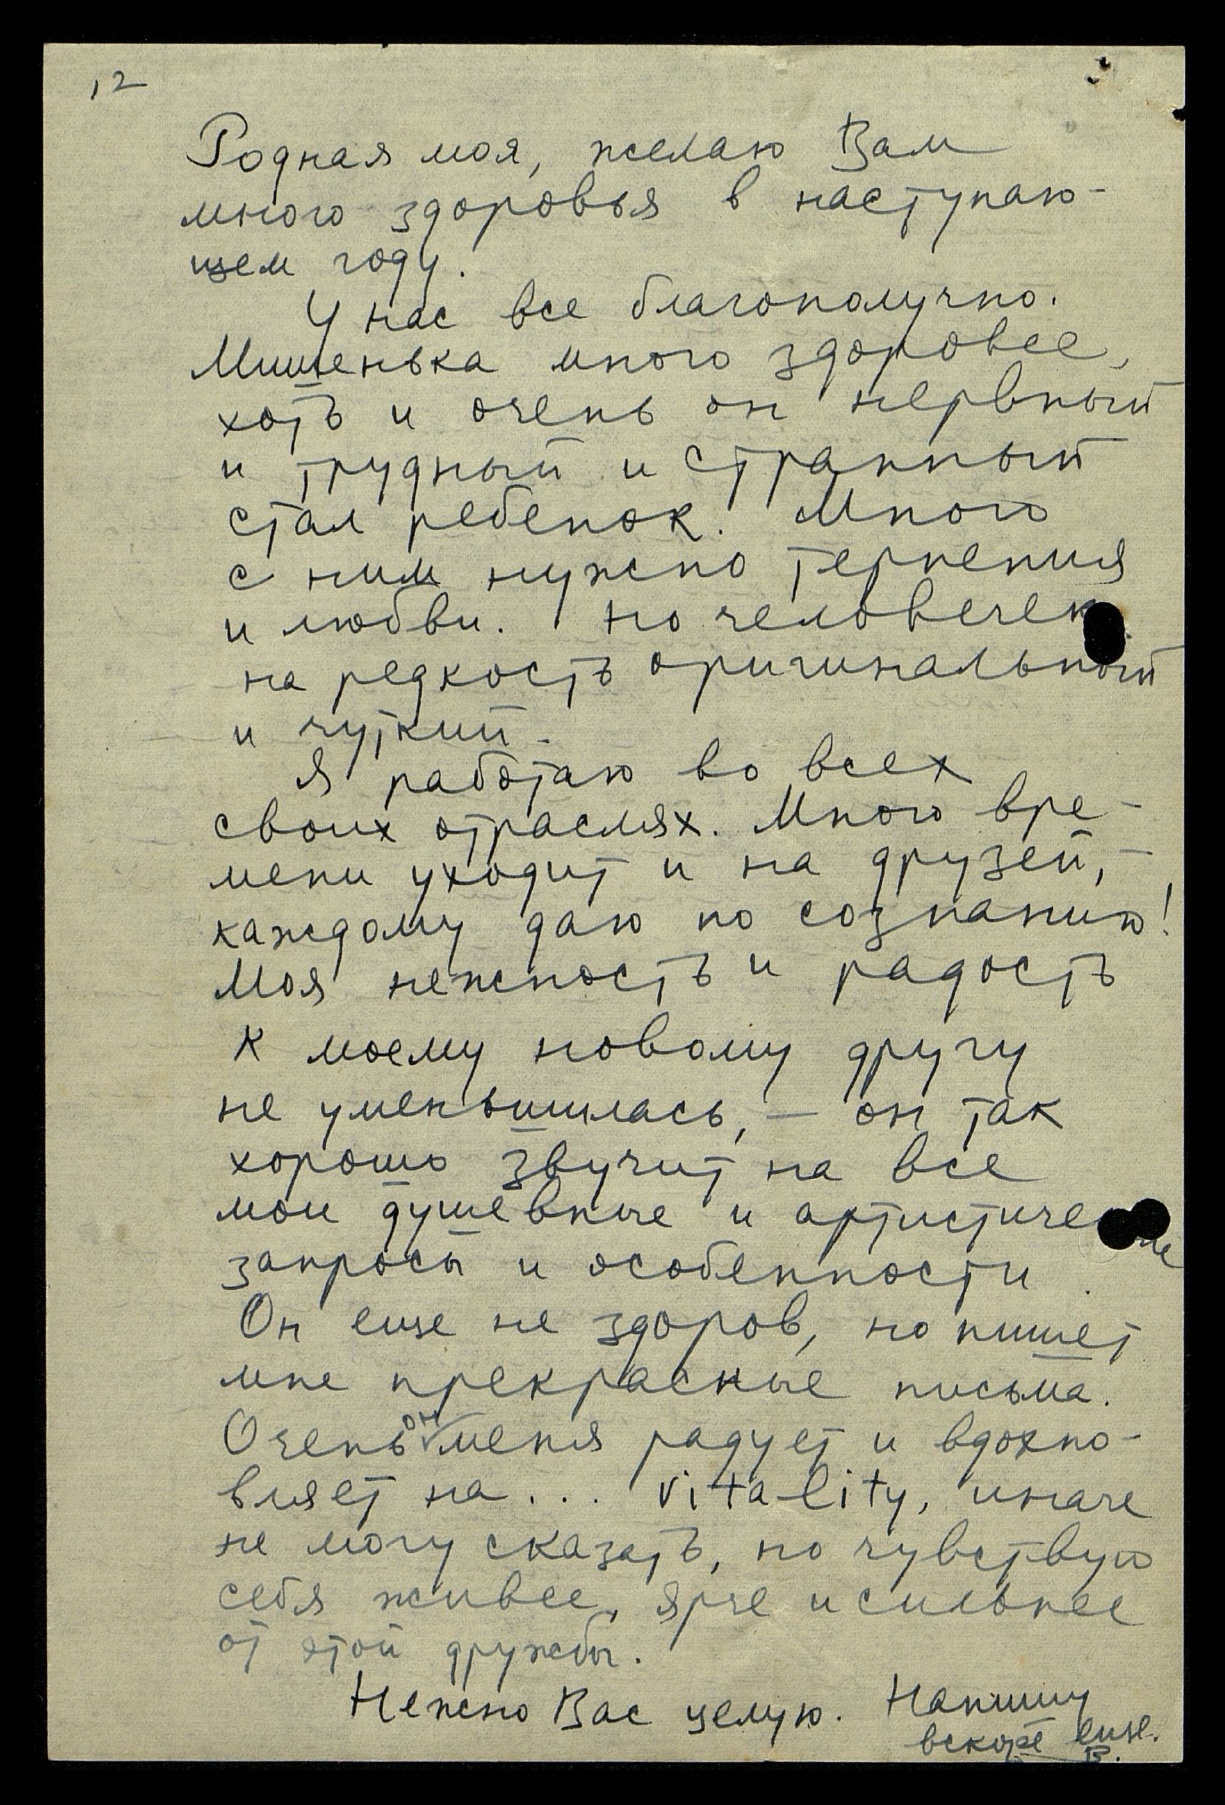 12
Родная моя, желаю Вам
много здоровья в наступаю-
щем году.
У нас все благополучно.
Мишенька много здоровее,
хоть и очень он нервный
и трудный и странный
стал ребенок. Много
с ним нужно терпения
и любви. Но человечек
на редкость оригинальный
и чуткий.
Я работаю во всех
своих отраслях. Много вре-
мени уходит и на друзей, -
каждому даю по сознанию!
Моя нежность и радость
к моему новому другу
не уменьшилась, — он так
хорошо звучит на все
мои душевные и артистиче
запросы и особенности.
Он еще не здоров, но пишет
мне прекрасные письма.
Очень он меня радует и вдохно-
вляет на... vitality, иначе
не могу сказать, но чувствую
себя живее, ярче и сильнее
от этой дружбы.
Нежно Вас целую. Напишу
вскоре еще.
В.